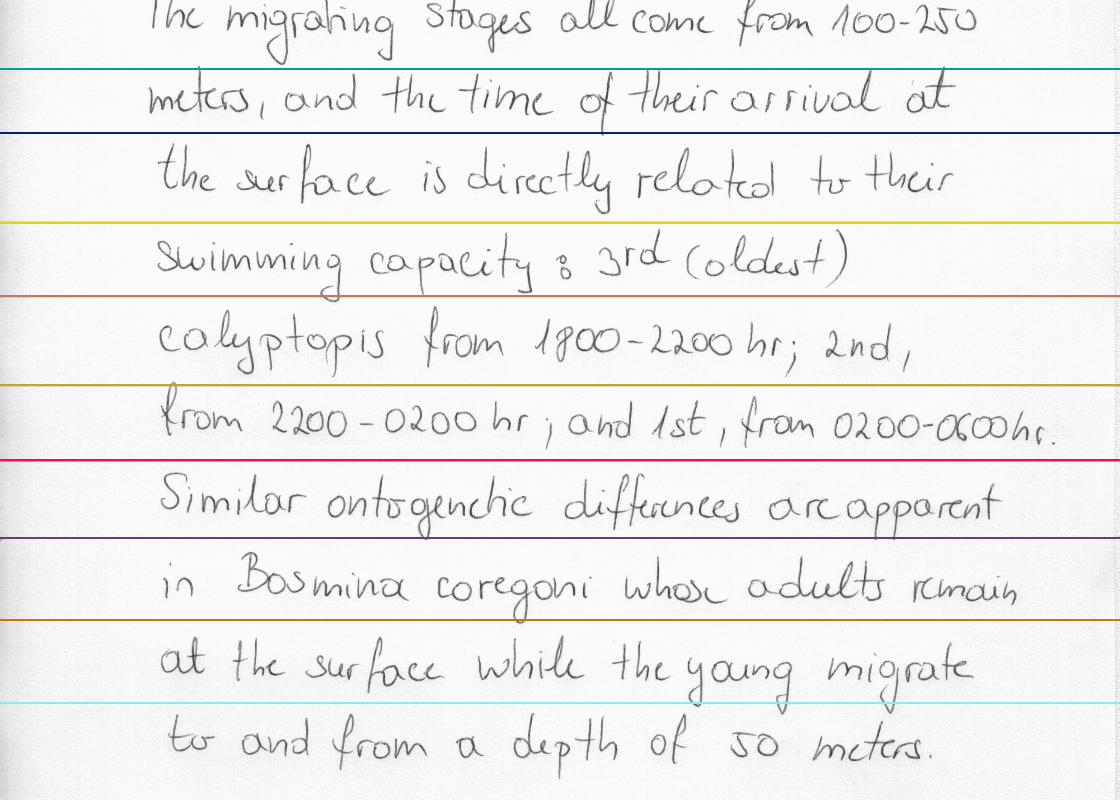 The migrating stages all come from 100-250
meters, and the time of their arrival at
the surface is directly related to their
swimming capacity: 3rd (oldest)
calyptopis from 1800-2200 hr; 2nd,
from 2200-0200 hr; and 1st, from 0200-0600hr.
Similar ontogenetic differences are apparent
in Bosmina coregoni whose adults remain
at the surface while the young migrate
to and from a depth of 50 meters.